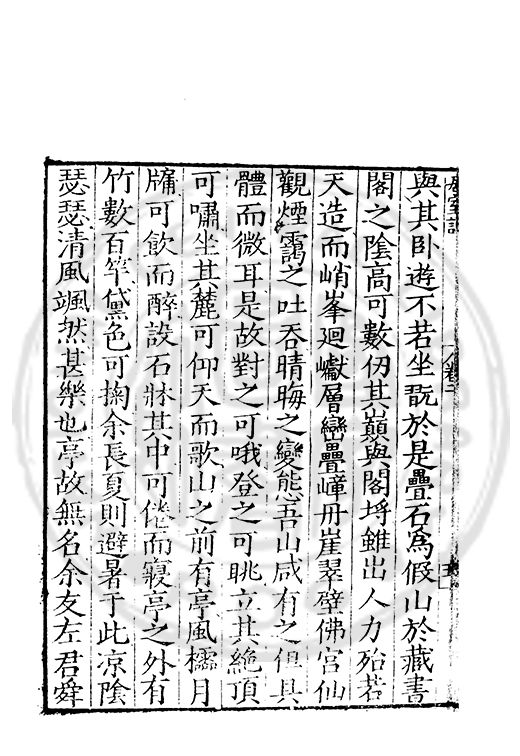 與其卧遊不若坐翫於是疊石為假山於藏書
閣之陰高可數仞其巔與閣埒雖出人力殆若
天造而峭峯廻巘層巒疊嶂丹崖翠壁佛宮仙
觀煙靄之吐吞晴晦之變態吾山咸有之俱具
體而微耳是故對之可哦登之可眺立其絶頂
可嘯坐其麓可仰天而歌山之前有亭風櫺月
牗可飲而醉設石牀其中可倦而寢亭之外有
竹數百竿黛色可掬余長夏則避暑于此凉陰
瑟瑟清風颯然甚樂也亭故無名余友左君舜